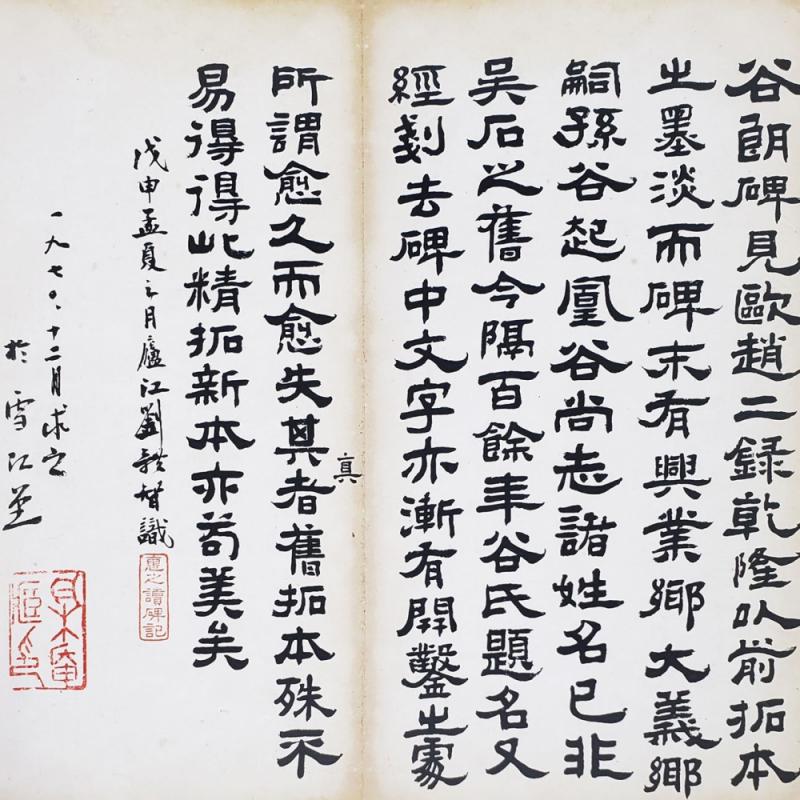 谷朗碑見歐趙二錄乾隆以前拓本
之墨淡而碑末有興業鄉大義鄉
嗣孫谷起凰谷尚志諸姓名已非
吳石之舊今隔百餘年谷氏題名又
經剗去碑中文字亦漸有開鑿之處
真
所謂愈久而愈失其者舊拓本殊不
易得得此精拓新本亦苟美矣
戊申孟夏之月廬江劉體智識
惠之讀碑記
一九七〇、十二月求之
於雪江堂